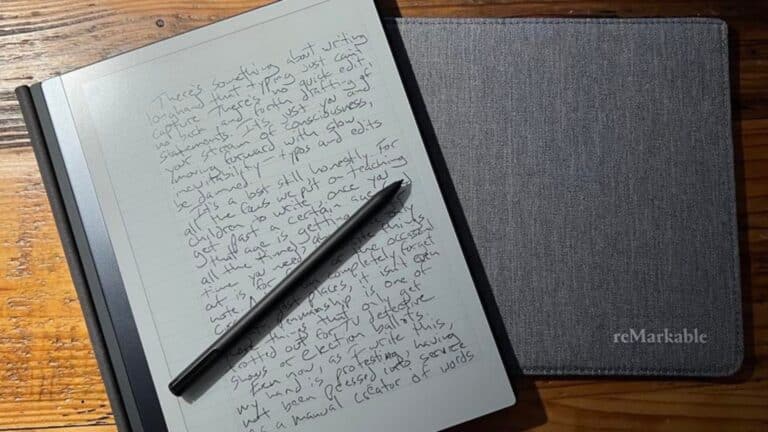 There's something about writing
longhand that typing just can't
capture. There's no quick edit,
no back and forth drafting of
statements. It's just you and
your stream of consciousness,
moving forward with slow
inevitability - typos and edits
be damned.
It's a lost skill honestly. For
all the focus we put on teaching
children to write, once you
get past a certain age (and
that age is getting
all the time), only
time you need
at is for things
note. the occasional
completely forget
past places, it isn't even
penmanship is one of
things that only get
trotted out for TV detective
shows or election ballots.
Even now, as I write this,
my hand is protesting, having
not been pressed into service
as a manual creator of words
reMarkable